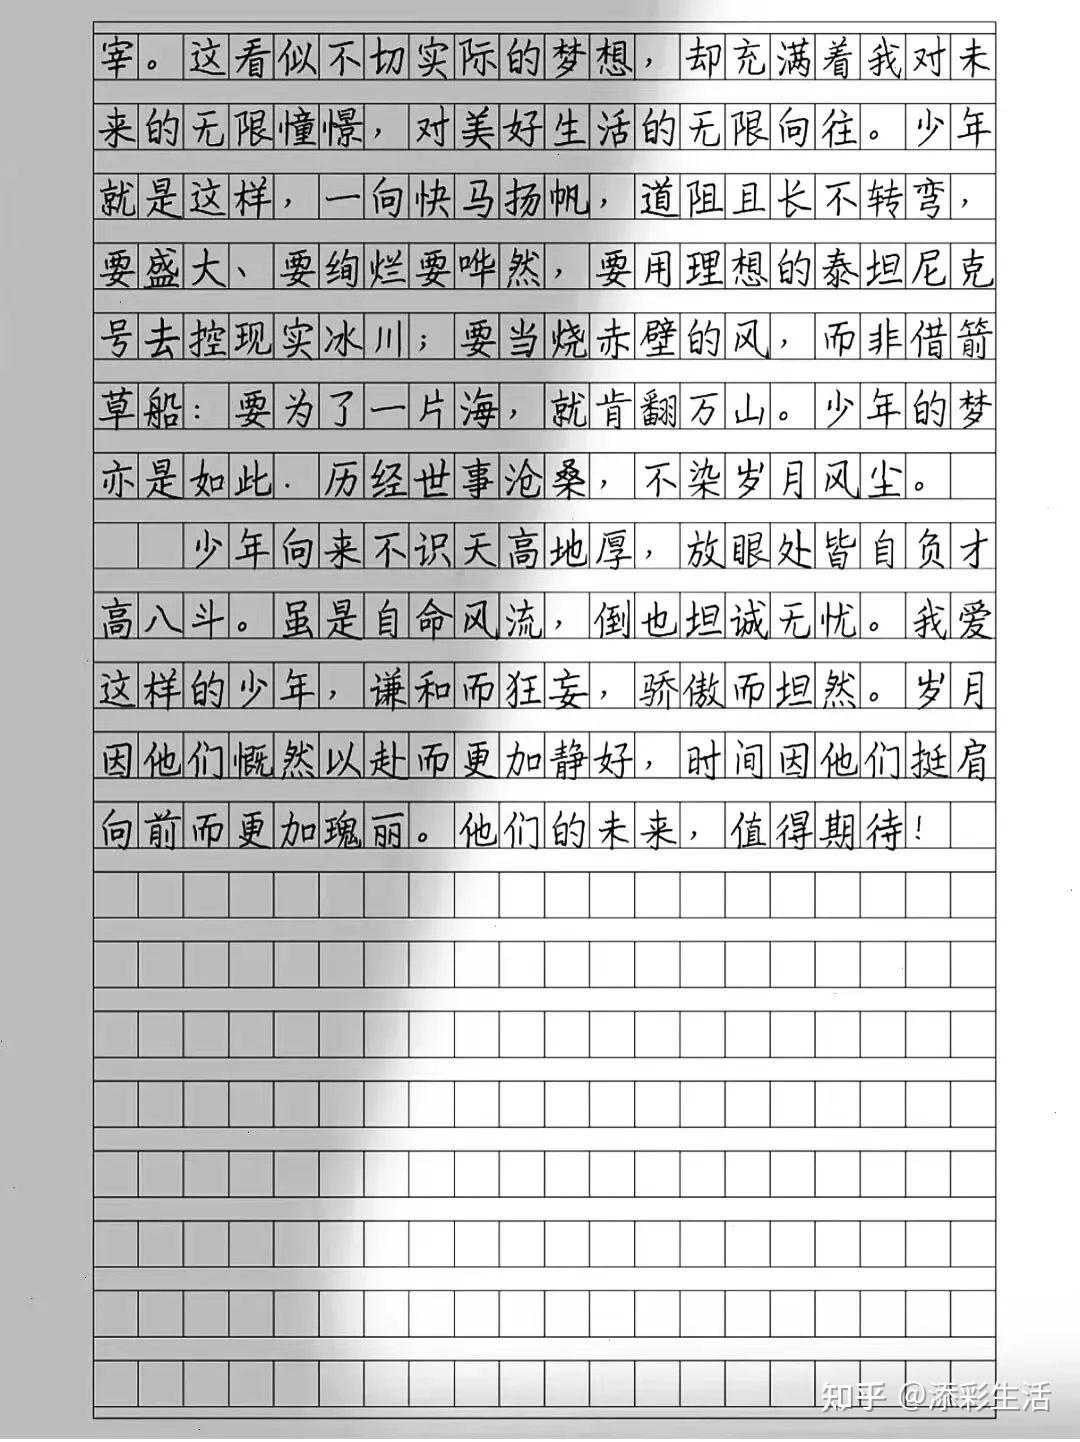 宰。这看似不切实际的梦想，却充满着我对未
来的无限憧憬，对美好生活的无限向往。少年
就是这样，一向快马扬帆，道阻且长不转弯，
要盛大、要绚烂要哗然，要用理想的泰坦尼克
号去控现实冰川；要当烧赤壁的风，而非借箭
草船：要为了一片海，就肯翻万山。少年的梦
亦是如此.历经世事沧桑，不染岁月风尘。
少年向来不识天高地厚，放眼处皆自负才
高八斗。虽是自命风流，倒也坦诚无忧。我爱
这样的少年，谦和而狂妄，骄傲而坦然。岁月
因他们慨然以赴而更加静好，时间因他们挺肩
向前而更加瑰丽。他们的未来，值得期待！
知乎 @添彩生活